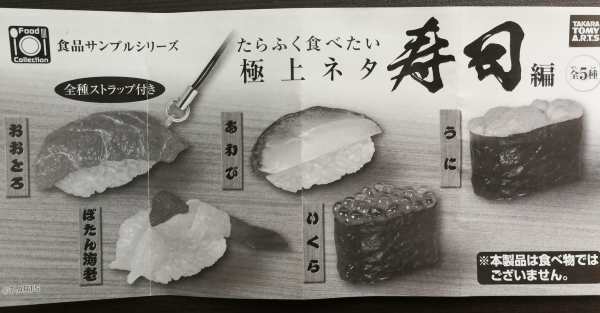 Food
Collection
食品サンプルシリーズ
たらふく食べたい
極上ネタ 寿司 編
全5種
TAKARA
TOMY
A.R.T.S
全種ストラップ付き
おおとろ
あわび
うに
ぼたん海老
いくら
※本製品は食べ物では
ございません。
©T-ARTS